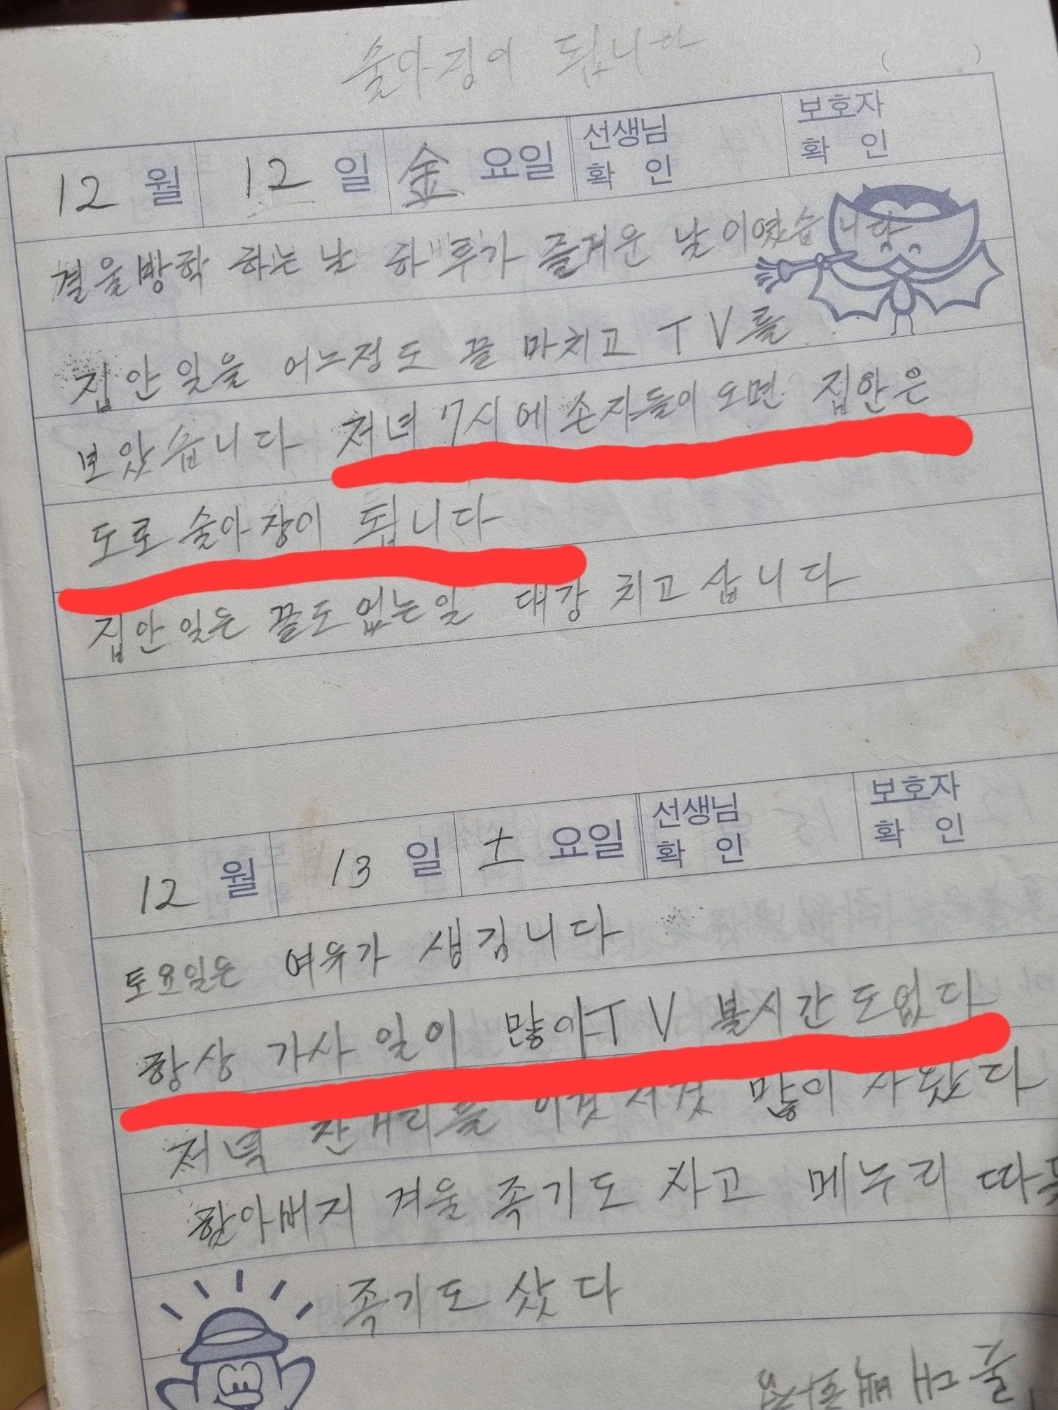 술아장이 됩니다
( )
12 월 12 일 金 요일 선생님 확 인 보호자 확 인
결울방학 하는 날 하루가 즐거운 날이였습니다
집안일을 어느정도 끝 마치고 TV를
보았습니다 저녁 7시에 손자들이 오면 집안은
도로 술아장이 됩니다
집안일은 끝도없는일 대강 치고 삽니다
12 월 13 일 土 요일 선생님 확 인 보호자 확 인
토요일은 여유가 생김니다
항상 가사 일이 많아 TV 볼시간도없다
저녁 이것저것 많이 사왔다
할아버지 겨울 족기도 사고 메누리
족기도 샀다